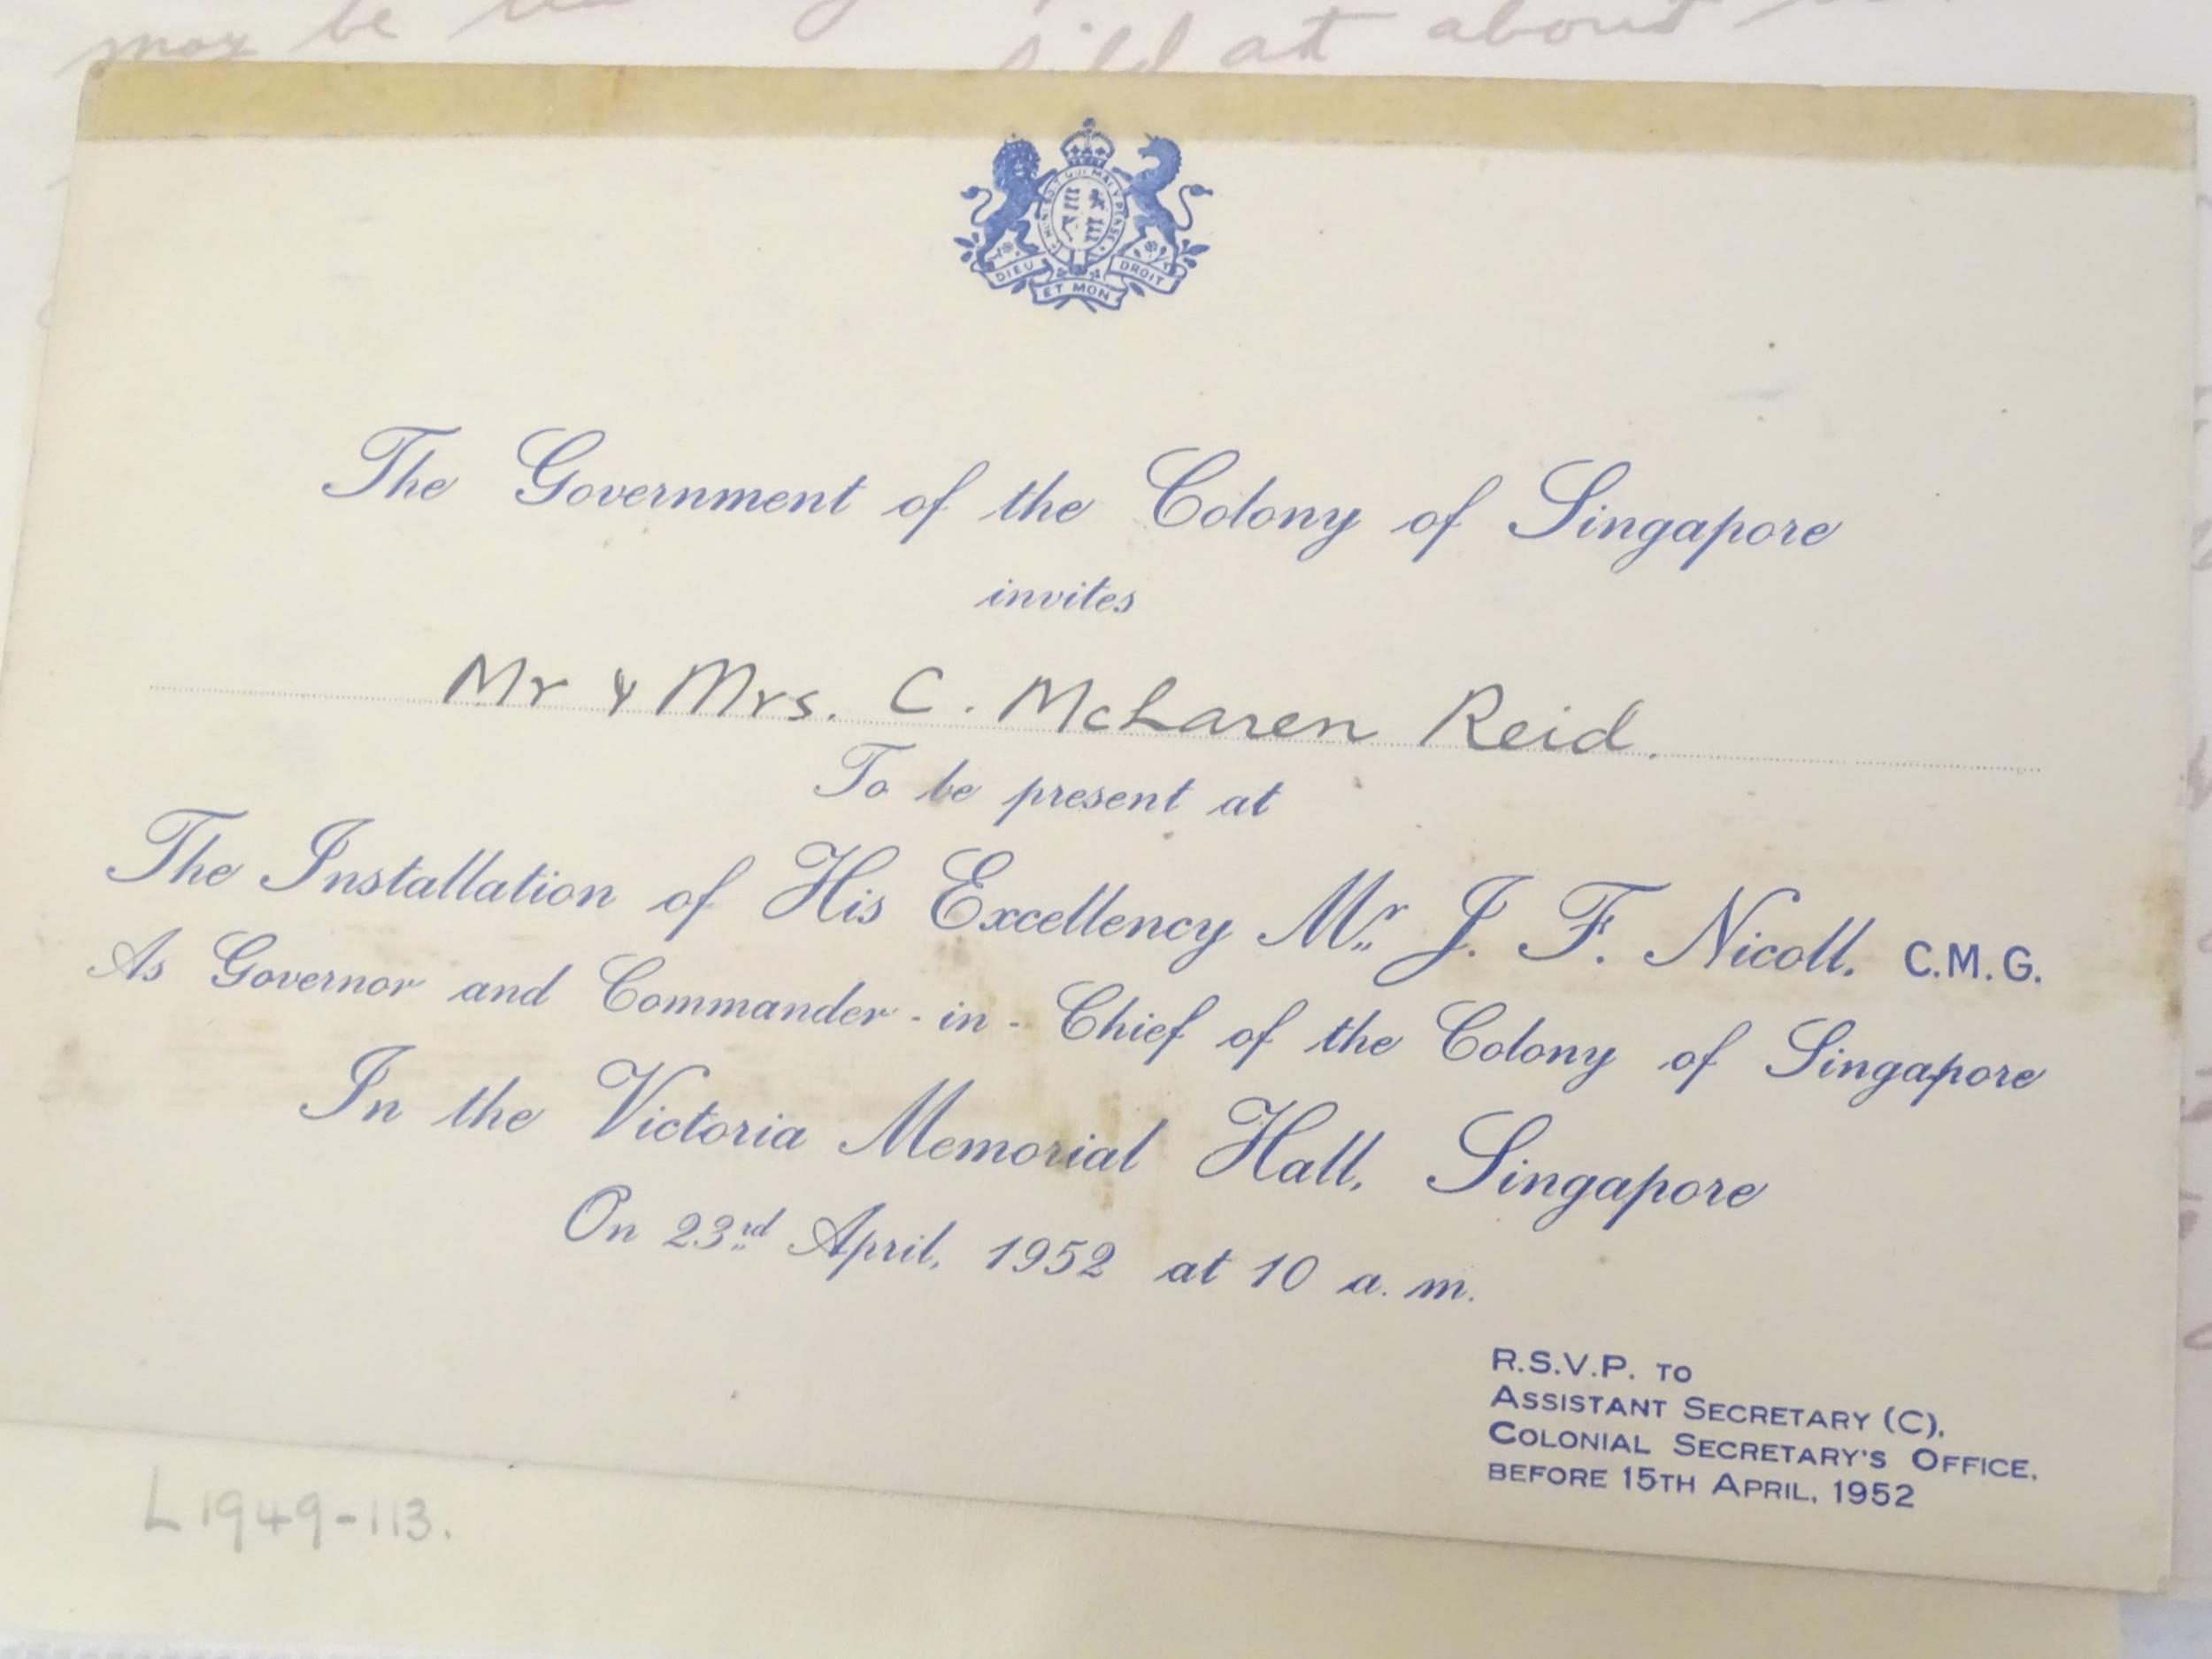 may be
sild at about
HONI SOIT QUI MAL Y PENSE
DIEU ET MON DROIT
The Government of the Colony of Singapore
invites
Mr & Mrs. C. McLaren Reid.
To be present at
The Installation of His Excellency Mr. J. F. Nicoll. C.M.G.
As Governor and Commander-in-Chief of the Colony of Singapore
In the Victoria Memorial Hall, Singapore
On 23rd April, 1952 at 10 a.m.
R.S.V.P. TO
ASSISTANT SECRETARY (C),
COLONIAL SECRETARY'S OFFICE,
BEFORE 15TH APRIL, 1952
L1949-113.